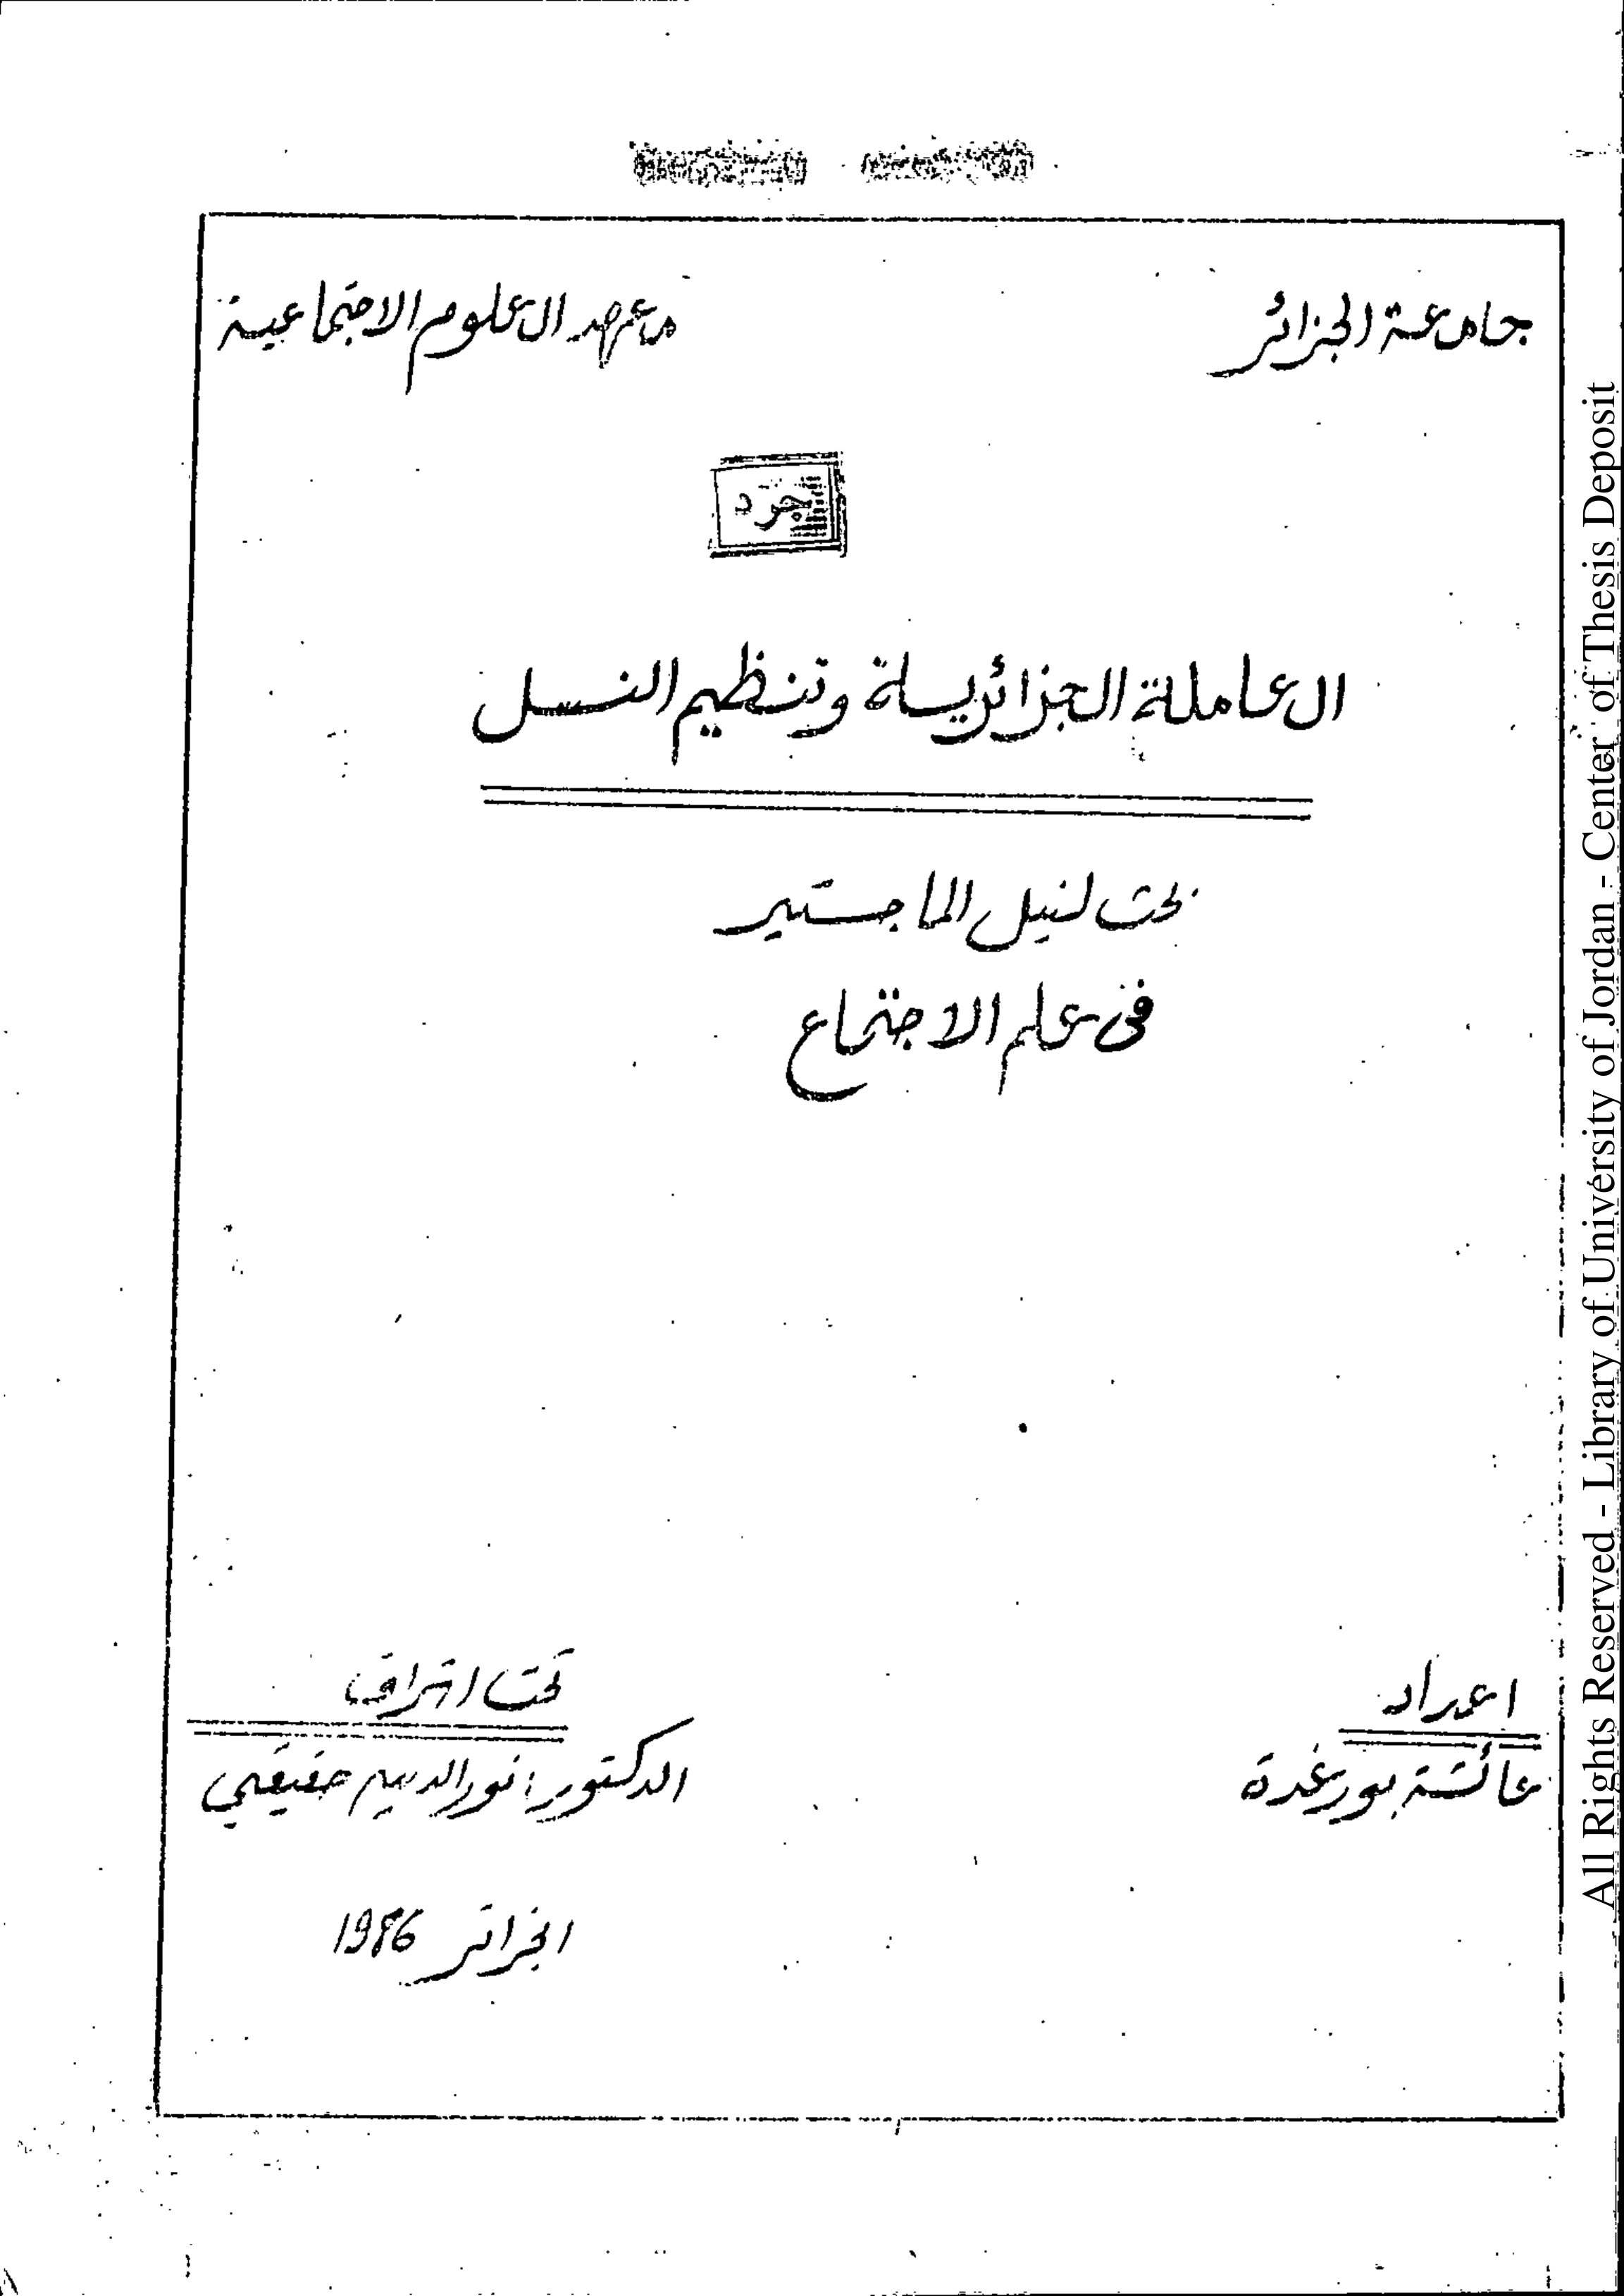 جامعة الجزائر
معهد العلوم الاجتماعية
جرد
العاملة الجزائرية وتنظيم النسل
بحث لنيل الماجستير
في علم الاجتماع
اعداد
عائشة بورغدة
تحت اشراف
الدكتور: نور الدين حقيقي
الجزائر 1986
All Rights Reserved - Library of University of Jordan - Center of Thesis Deposit